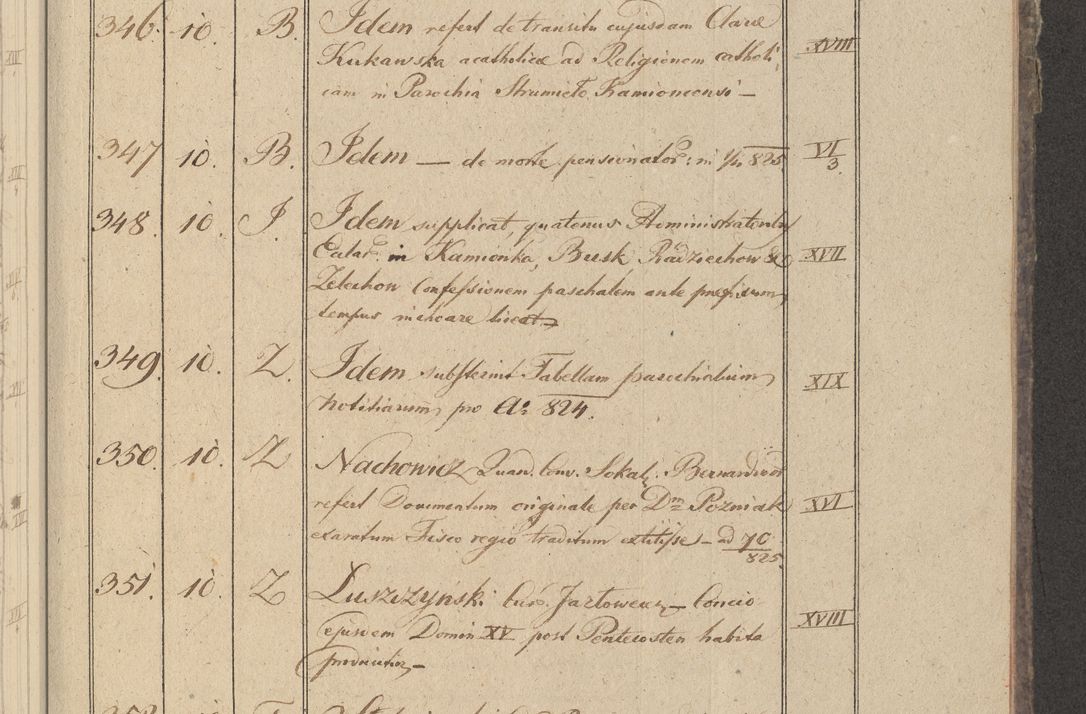 346. 10. B. Idem refert de transitu cujusdam Clarae
Kukawska acatholicae ad Religionem catholi XVIII
cam in Parochia Strumiło Kamioncensi —
347 10. B. Idem — de morte pensionator: in 825. VI/3.
348. 10. I. Idem supplicat, quatenus Administratoribus
Ealar: in Kamionka, Busk Radziechow & XVII
Zelechow Confessionem paschalem ante praefixum
tempus inchoare liceat
349. 10. Z. Idem substernit Tabellam parochialium XIX
notitiarum pro Ao 824.
350. 10. Z Nachowicz Quard. Conv. Sokal. Bernardinor
refert Documentum originale per Dm Pozniak XVI
exaratum Fisco regio traditum extitisse — ad 70/825.
351. 10. Z Łuszczynski Cur. Jazłowecz — Concio
ejusdem Domin XV post Pentecosten habita XVIII